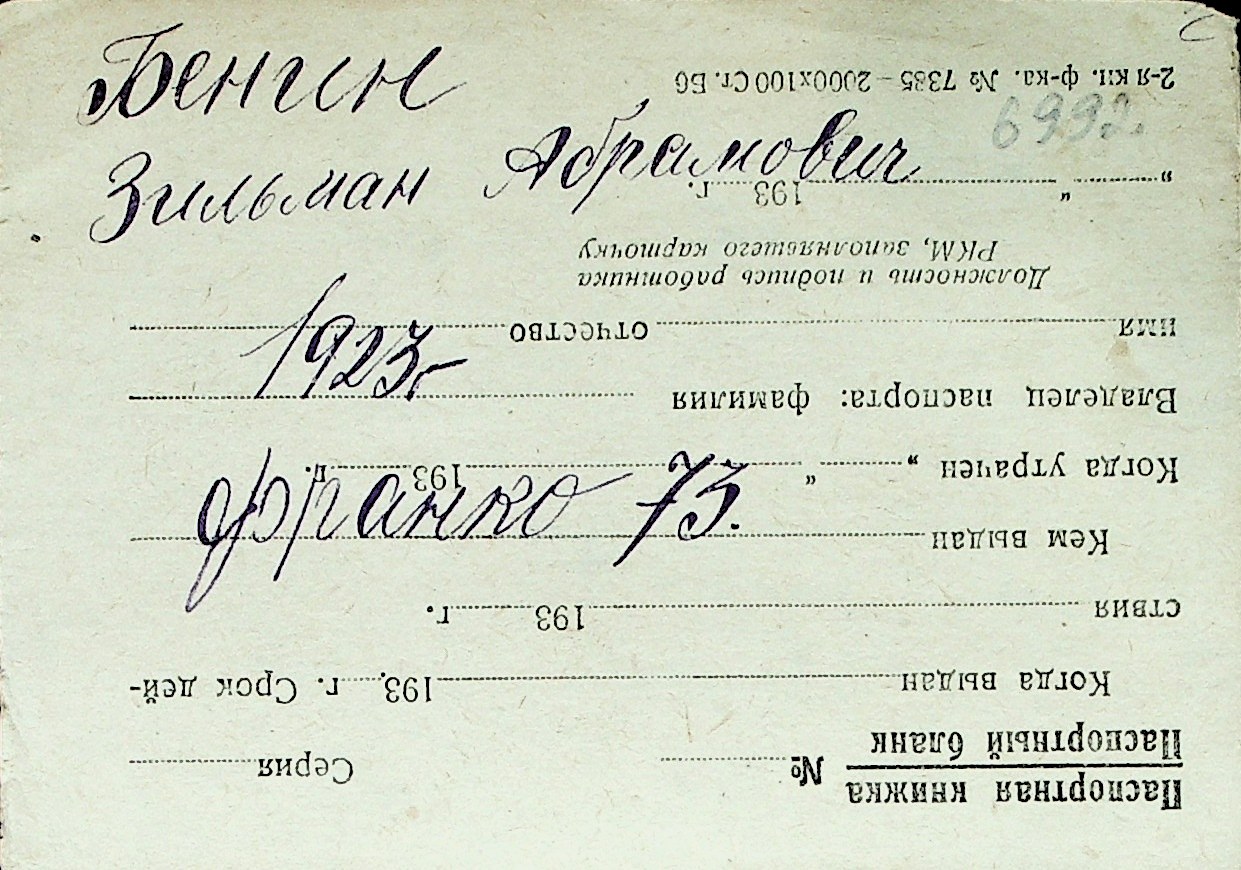 Бенгин
Зильман Абрамович
1923 г
Франко 73.
6992.
Паспортная книжка
Паспортный бланк
№ Серия
Когда выдан 193 г. Срок дей-
ствия 193 г.
Кем выдан
Когда утрачен „ “ 193 г.
Владелец паспорта: фамилия
имя отчество
Должность и подпись работника
РКМ, заполнявшего карточку
„ “ 193 г.
2-я кн. ф-ка. № 7385 – 2000х100 Ст. Б6